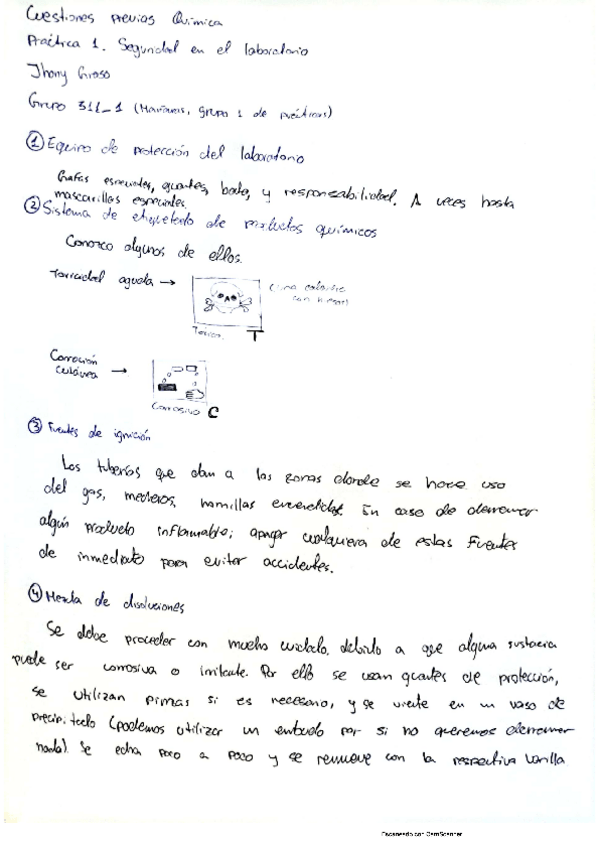 Cuestiones previas Química
Práctica 1. Seguridad en el laboratorio
Jhony Grosso
Grupo 311_1 (Mañanas, grupo 1 de prácticas)
① Equipo de protección del laboratorio
Gafas especiales, guantes, bata, y responsabilidad. A veces hasta
mascarillas especiales.
② Sistema de etiquetado de productos químicos
Conozco algunos de ellos.
Toxicidad aguda →
(Una calavera
con huesos)
Tóxico. T
Corrosión
cutánea →
Corrosivo C
③ Fuentes de ignición
Las tuberías que dan a las zonas donde se hace uso
del gas, mecheros, hornillas encendidas. En caso de derramar
algún producto inflamable; apagar cualquiera de estas fuentes
de inmediato para evitar accidentes.
④ Mezcla de disoluciones
Se debe proceder con mucho cuidado, debido a que alguna sustancia
puede ser corrosiva o irritante. Por ello se usan guantes de protección,
se utilizan pinzas si es necesario, y se vierte en un vaso de
precipitado (podemos utilizar un embudo por si no queremos derramar
nada). Se echa poco a poco y se remueve con la respectiva varilla
Escaneado con CamScanner